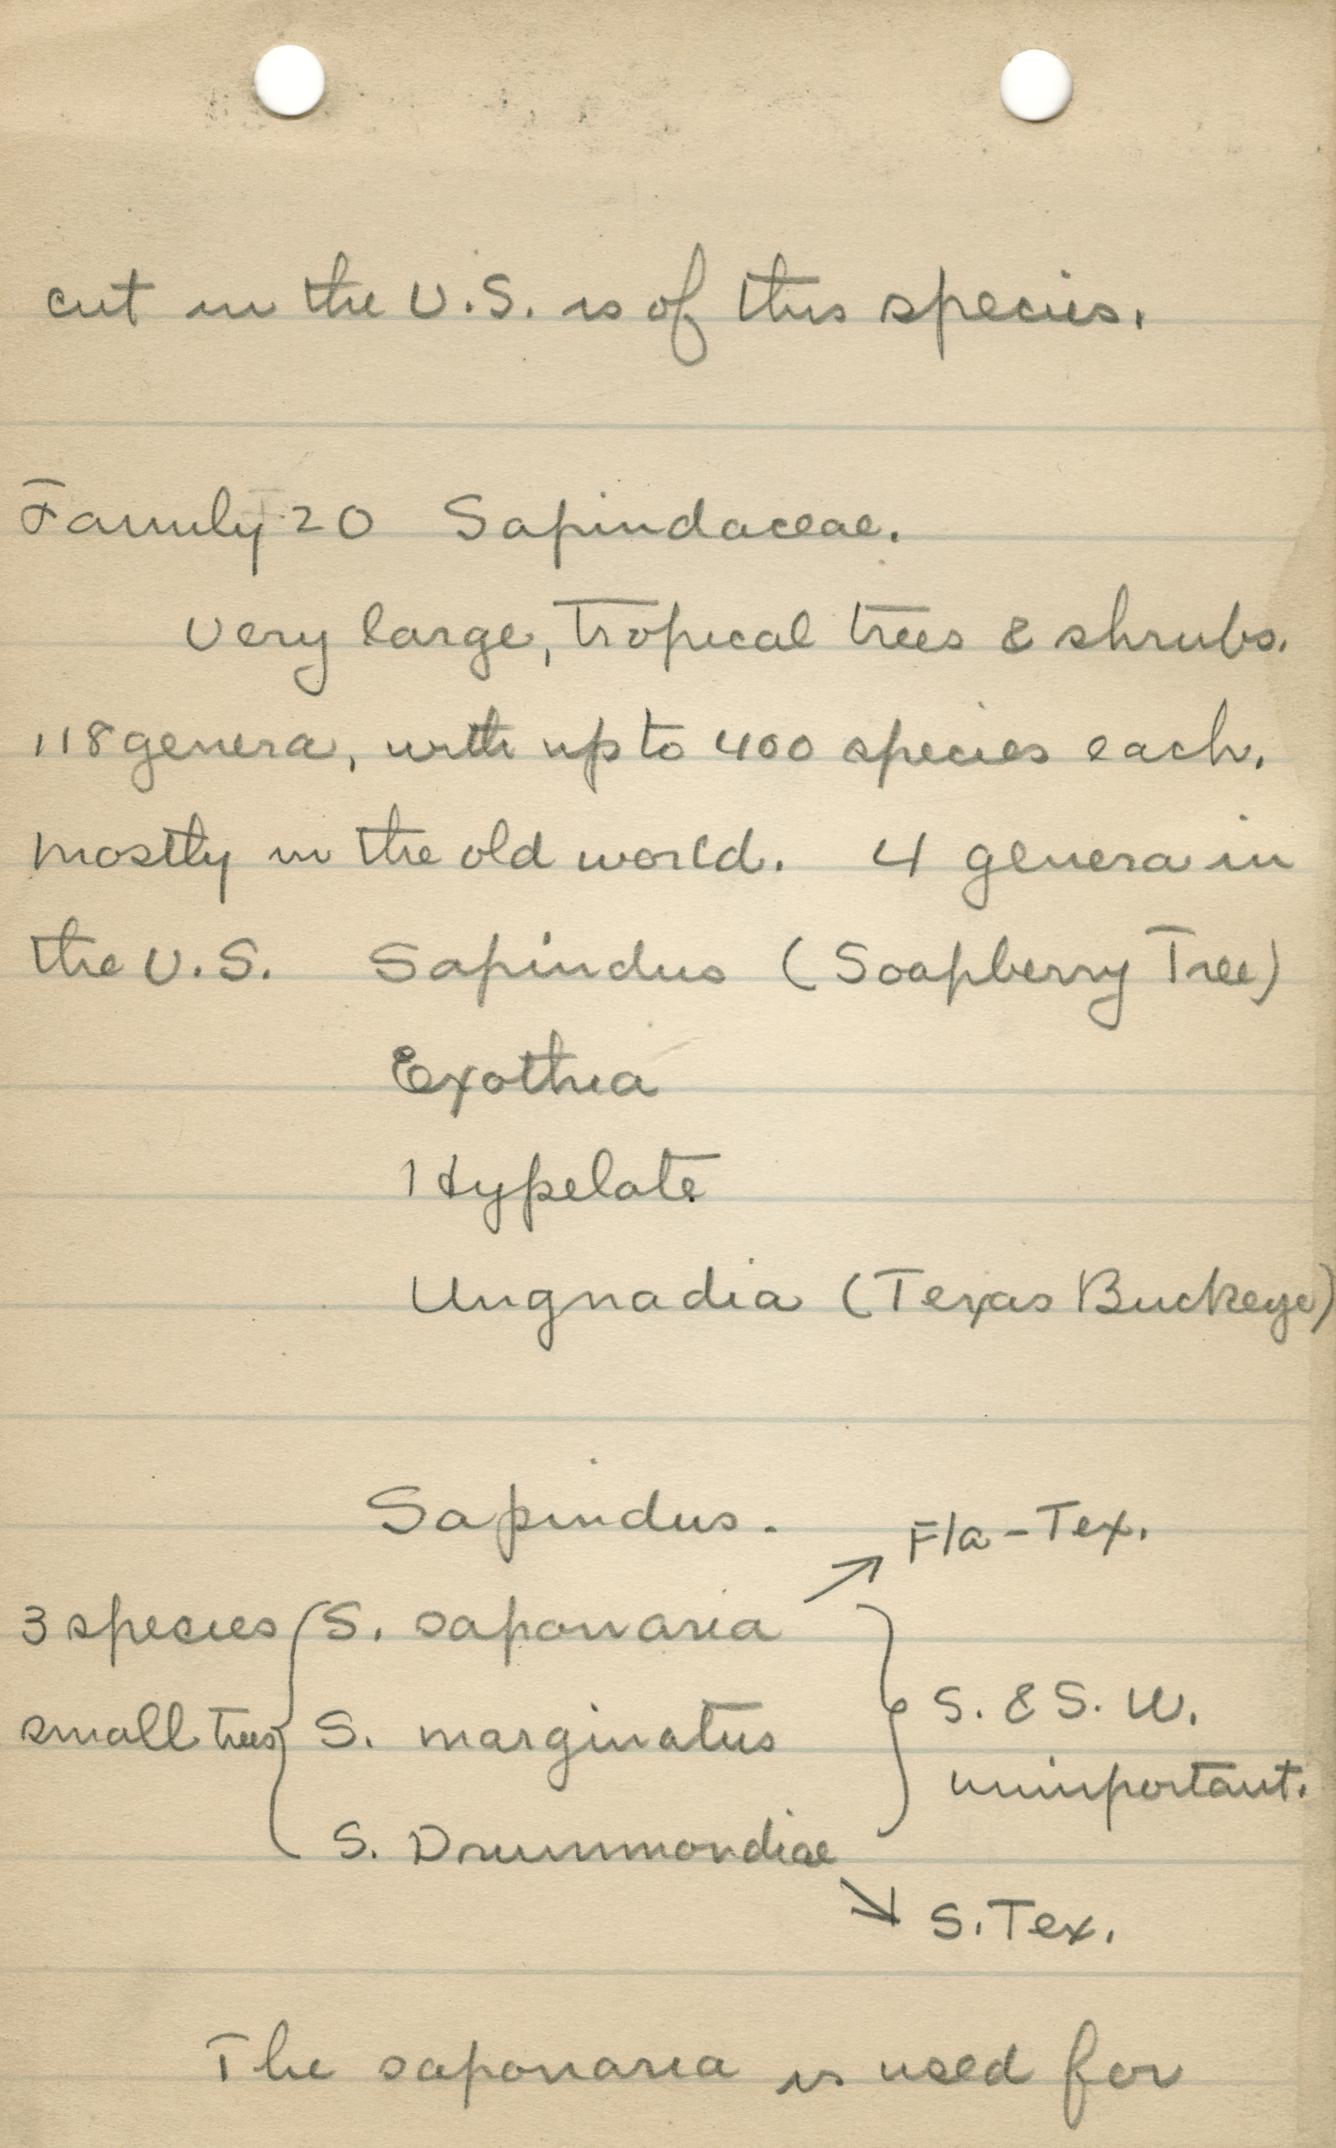 cut in the U.S. is of this species.
Family 20 Sapindaceae.
Very large, tropical trees & shrubs.
118 genera, with up to 400 species each,
mostly in the old world. 4 genera in
the U.S. Sapindus (Soapberry Tree)
Exothia
Hypelate
Ungnadia (Texas Buckeye)
Sapindus.
Fla-Tex.
3 species S. saponaria
S. & S. W.
small trees S. marginatus
unimportant.
S. Drummondiae
S. Tex.
The saponaria is used for